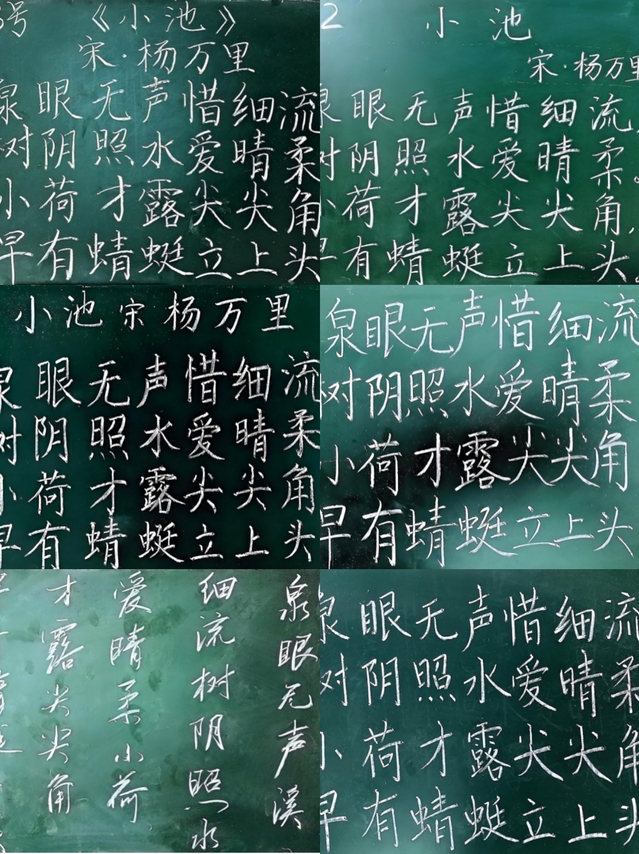 号 《小池》
宋·杨万里
泉眼无声惜细流
树阴照水爱晴柔
小荷才露尖尖角
早有蜻蜓立上头
2 小池
宋·杨万里
泉眼无声惜细流
树阴照水爱晴柔。
小荷才露尖尖角,
早有蜻蜓立上头
小池 宋 杨万里
泉眼无声惜细流
树阴照水爱晴柔
小荷才露尖尖角
早有蜻蜓立上头
泉眼无声惜细流
树阴照水爱晴柔
小荷才露尖尖角
早有蜻蜓立上头
泉眼无声溪
细流树阴照水
爱晴柔小荷
才露尖尖角
泉眼无声惜细流
树阴照水爱晴柔
小荷才露尖尖角
早有蜻蜓立上头